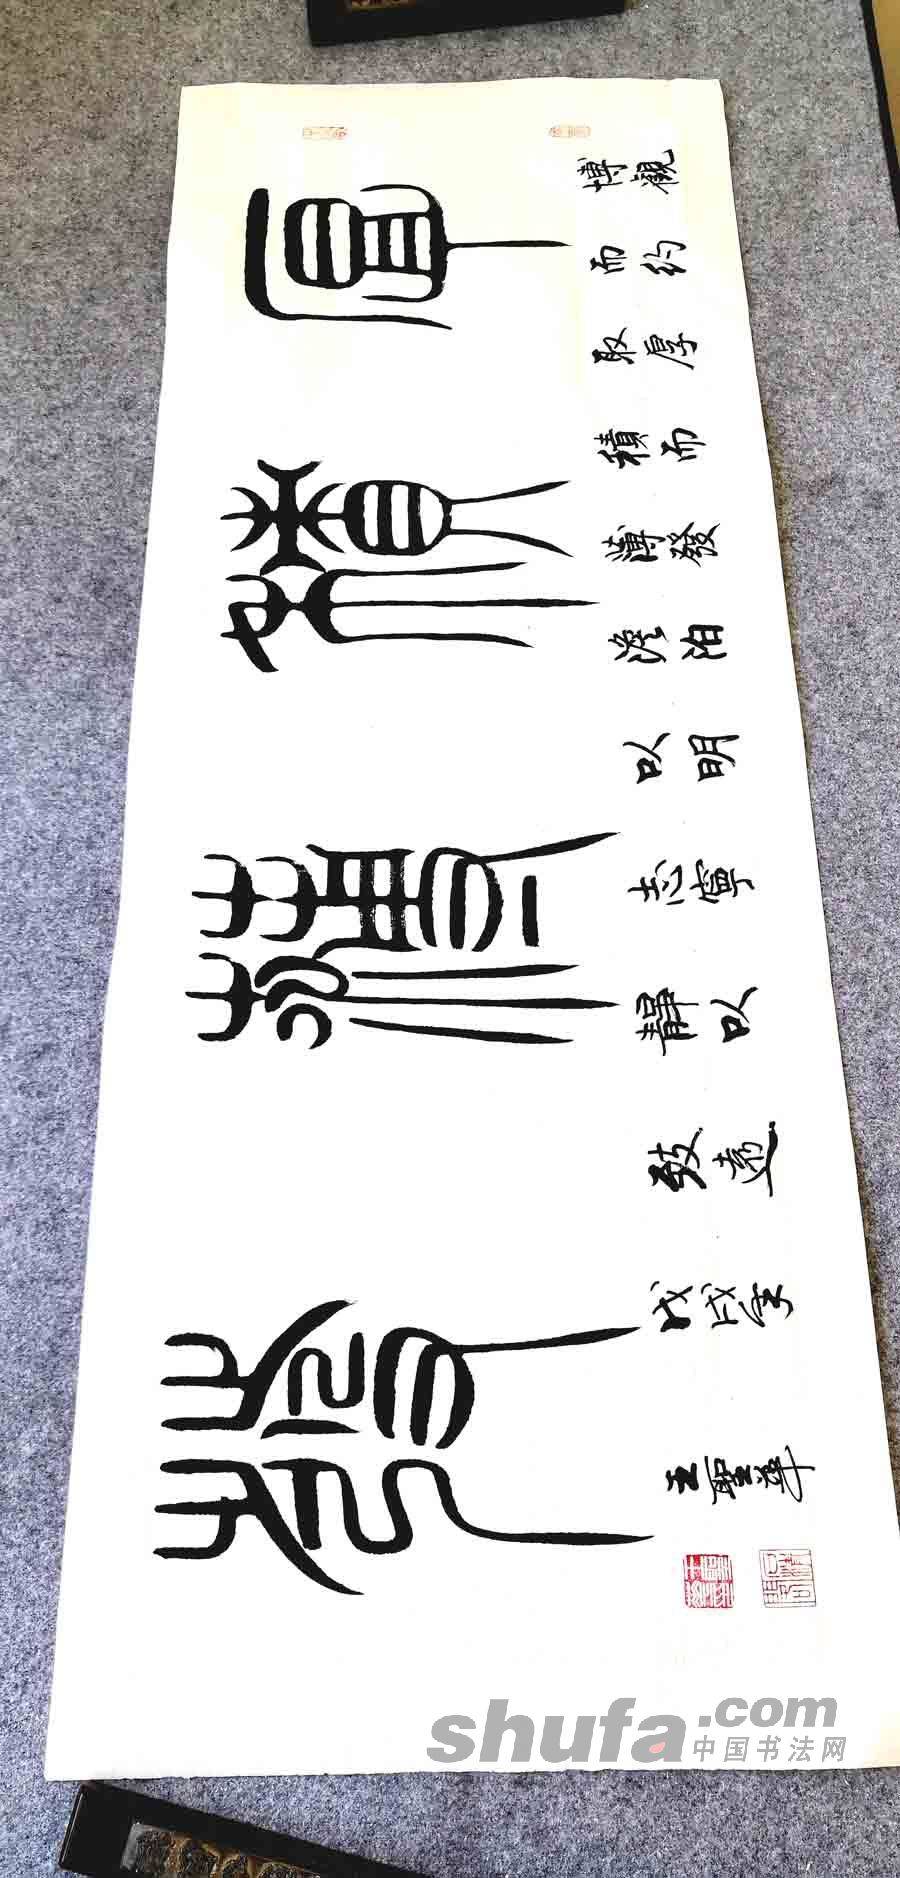 厚積薄發
博觀
而約
取厚
積而
薄發
澹泊
以明
志寧
靜以
致遠
戊戌
王聖
shufa.com
中国书法网